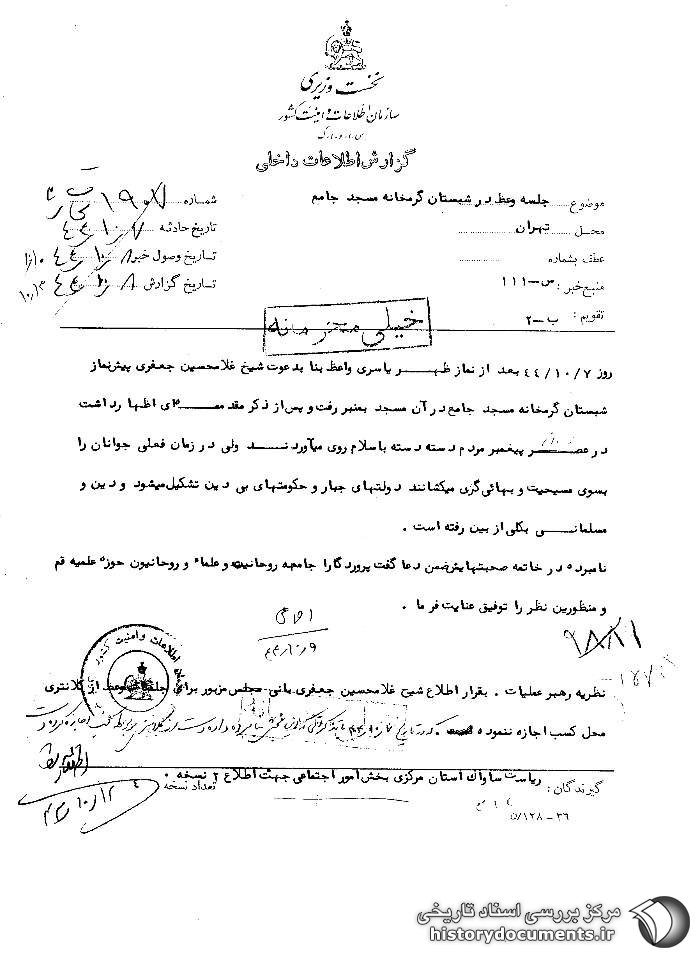 نخست وزیری
سازمان اطلاعات و امنیت کشور
س.ا.و.ا.ک
گزارش اطلاعات داخلی
موضوع جلسه وعظ در شبستان گرمخانه مسجد جامع
محل تهران
عطف بشماره
منبع خبر : س-۱۱۱
تقویم : ب-۲
شماره
تاریخ حادثه ۴۴/۱۰/۷
تاریخ وصول خبر ۴۴/۱۰/۸
تاریخ گزارش ۴۴/۱۰/۸
خیلی محرمانه
روز ۴۴/۱۰/۷ بعد از نماز ظهر یاسری واعظ بنا بدعوت شیخ غلامحسین جعفری پیشنماز
شبستان گرمخانه مسجد جامع در آن مسجد بمنبر رفت و پس از ذکر مقدمه ای اظهار داشت
در عصر پیغمبر مردم دسته دسته باسلام روی میآوردند ولی در زمان فعلی جوانان را
بسوی مسیحیت و بهائی گری میکشانند دولتهای جبار و حکومتهای بی دین تشکیل میشود و دین و
مسلمانی بکلی از بین رفته است .
نامبرده در خاتمه صحبتهایش ضمن دعا گفت پروردگارا جامعه روحانیت و علماء و روحانیون حوزه علمیه قم
و منظورین نظر را توفیق عنایت فرما .
۴۴/۱۰/۹
نظریه رهبر عملیات . بقرار اطلاع شیخ غلامحسین جعفری بانی مجلس مزبور برای جلسه وعظ از کلانتری
محل کسب اجازه ننموده
اطلاعات و امنیت کشور
گیرندگان : ریاست ساواک استان مرکزی بخش امور اجتماعی جهت اطلاع ۲ نسخه .
تعداد نسخه
۵/۱۲۸-۳۶
مرکز بررسی اسناد تاریخی
historydocuments.ir